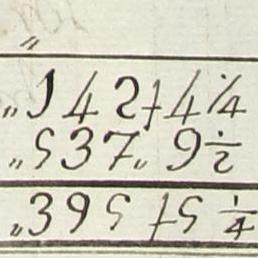 „
„142 f 4 ¼
„537„ 9 ½
„395 f 5 ¼